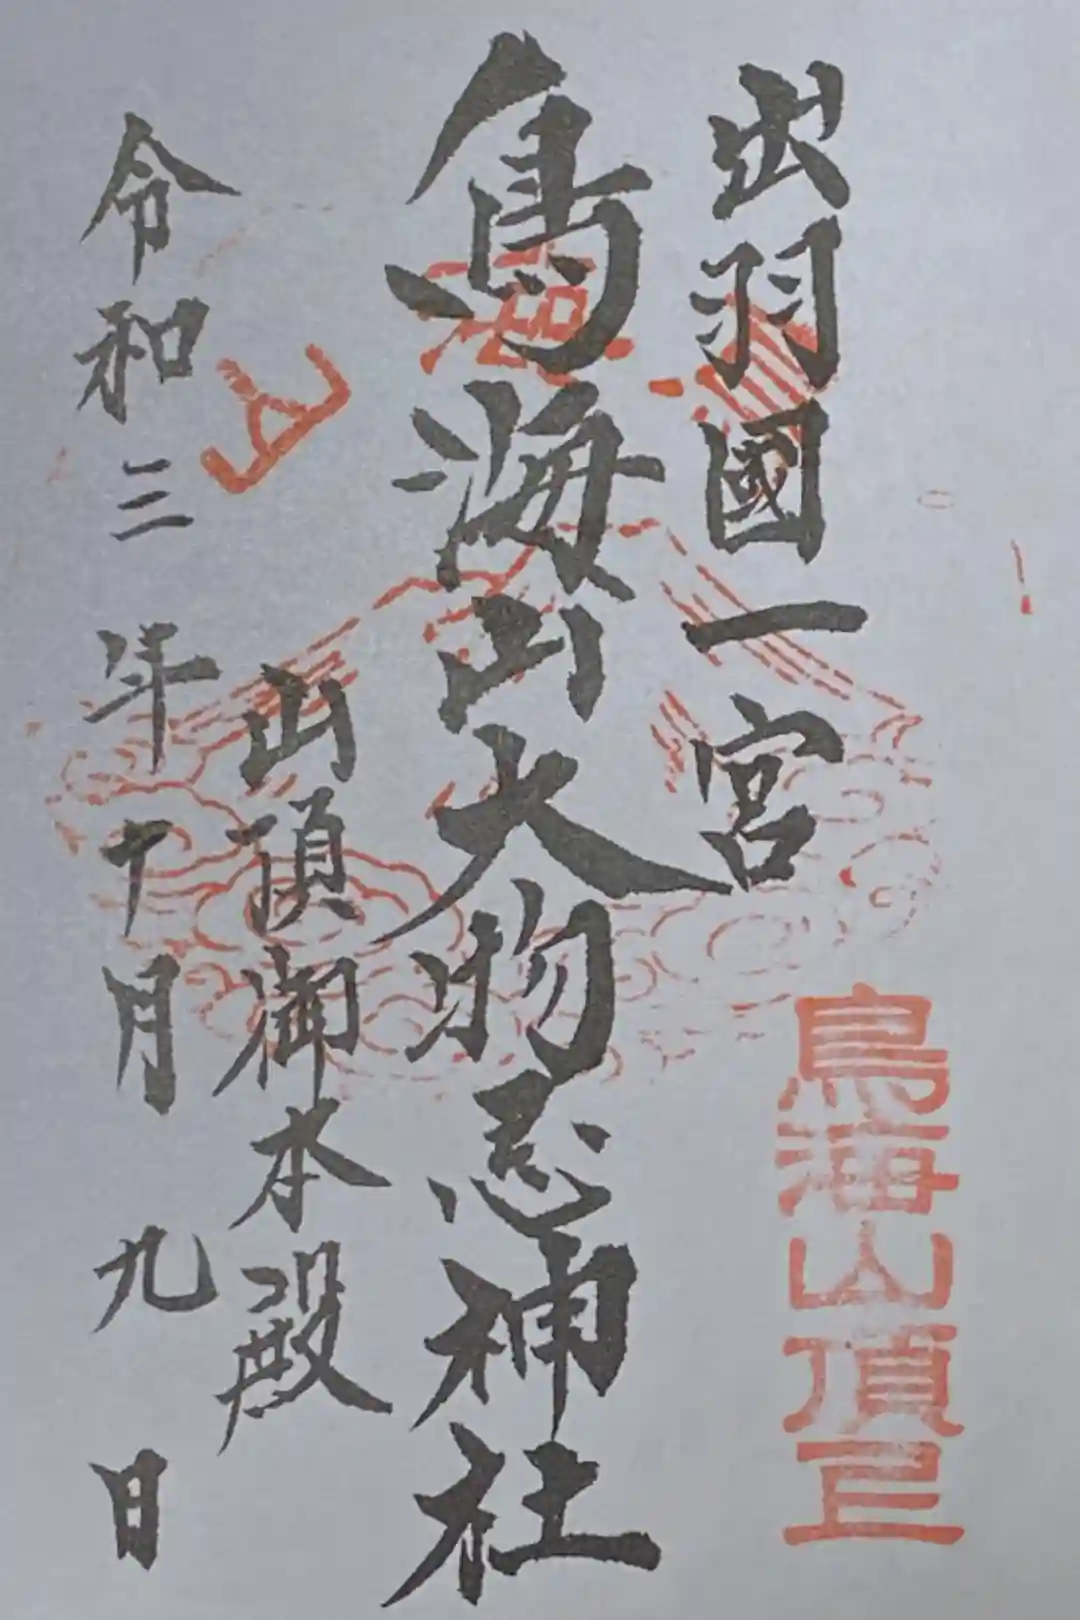 出羽國一宮
鳥海山大物忌神社
山頂御本殿
令和三年十月九日
鳥海山
鳥海山頂上